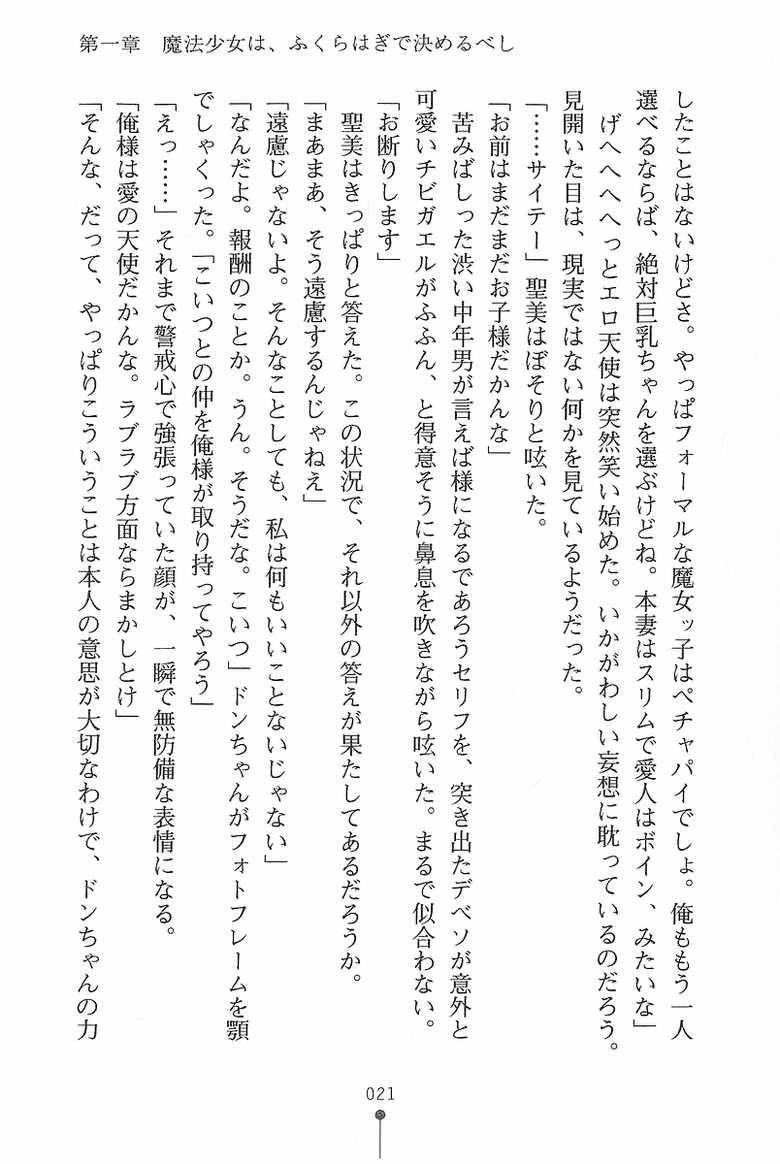 第一章　魔法少女は、ふくらはぎで決めるべし
したことはないけどさ。やっぱフォーマルな魔女ッ子はペチャパイでしょ。俺ももう一人
選べるならば、絶対巨乳ちゃんを選ぶけどね。本妻はスリムで愛人はボイン、みたいな」
　げへへへへっとエロ天使は突然笑い始めた。いかがわしい妄想に耽っているのだろう。
見開いた目は、現実ではない何かを見ているようだった。
「……サイテー」聖美はぼそりと呟いた。
「お前はまだまだお子様だかんな」
　苦みばしった渋い中年男が言えば様になるであろうセリフを、突き出たデベソが意外と
可愛いチビガエルがふふん、と得意そうに鼻息を吹きながら呟いた。まるで似合わない。
「お断りします」
　聖美はきっぱりと答えた。この状況で、それ以外の答えが果たしてあるだろうか。
「まあまあ、そう遠慮するんじゃねえ」
「遠慮じゃないよ。そんなことしても、私は何もいいことないじゃない」
「なんだよ。報酬のことか。うん。そうだな。こいつ」ドンちゃんがフォトフレームを顎
でしゃくった。「こいつとの仲を俺様が取り持ってやろう」
「えっ……」それまで警戒心で強張っていた顔が、一瞬で無防備な表情になる。
「俺様は愛の天使だかんな。ラブラブ方面ならまかしとけ」
「そんな、だって、やっぱりこういうことは本人の意思が大切なわけで、ドンちゃんの力
021